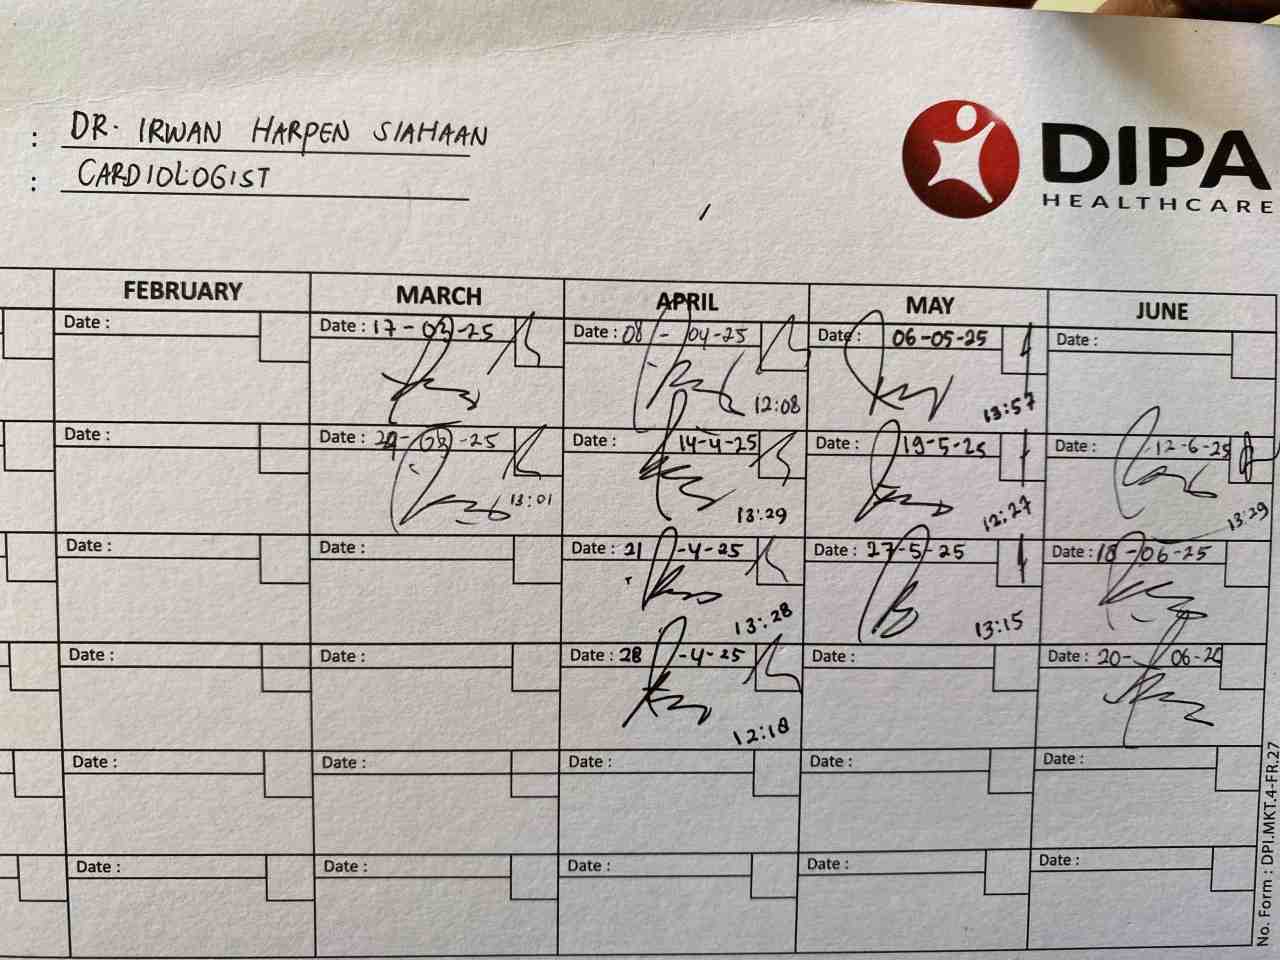 : DR. IRWAN HARPEN SIAHAAN
: CARDIOLOGIST
DIPA
HEALTHCARE
FEBRUARY MARCH APRIL MAY JUNE
Date : Date : 17-03-25 Date : 08-04-25 Date : 06-05-25 Date :
12:08 13:57
Date : Date : 03-25 Date : 14-4-25 Date : 19-5-25 Date : 12-6-25
13:01 13:29 12:27 13:29
Date : Date : Date : 21-4-25 Date : 27-5-25 Date : 18-06-25
13:28 13:15
Date : Date : Date : 28-4-25 Date : Date : 20-06-20
12:18
Date : Date : Date : Date : Date :
Date : Date : Date : Date : Date :
No. Form : DPI.MKT.4-FR.27